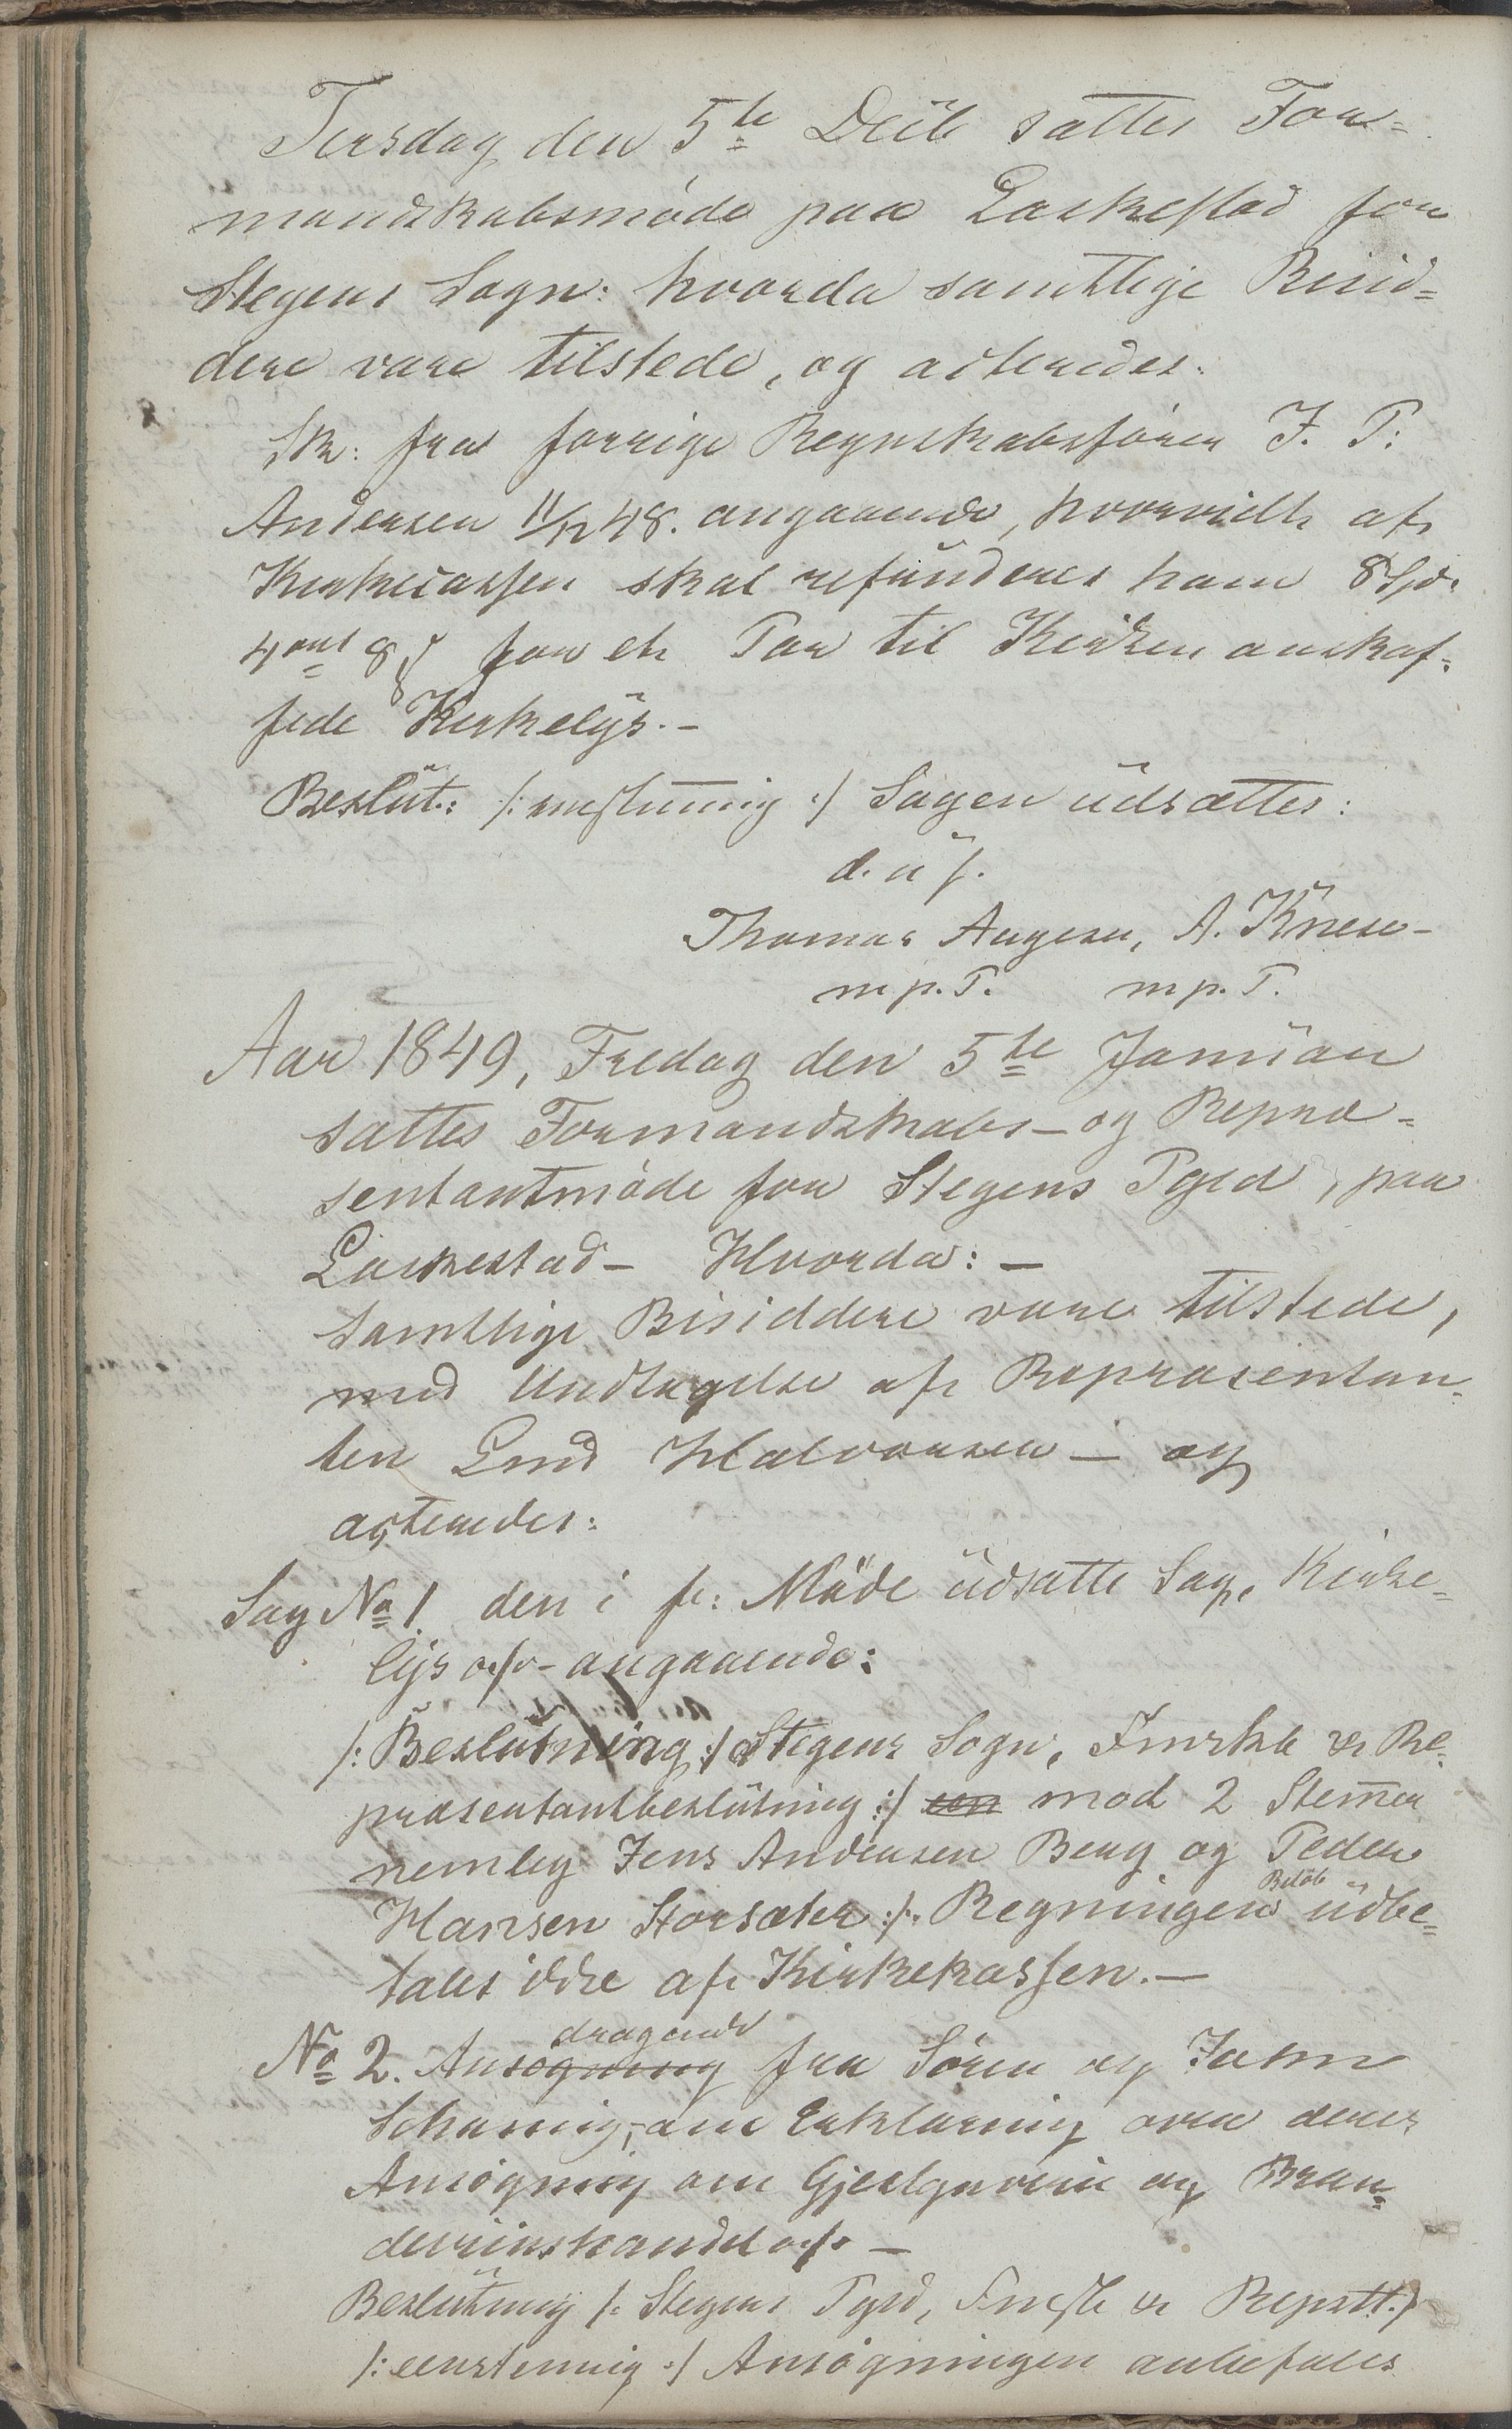 Tirsdag den 5te Decb sattes For-
mandskabsmøde paa Laskestad for
Stegens Sogn: hvorda samtlige Bisid=
dere vare tilstede, og acteredes:
Skr: fra forrige Regnskabsfører J. P.
Andersen 11/12 48. angaaende, hvorvidt af
Kirkecassen skal refunderes ham 8 Spd.
4 ort 8 s for et Par til Kirken anskaf-
fede Kirkelys.-
Beslut: /: enstemig :/ Sagen udsættes:
d. u s.
Thomas Angesen, A. Knese-
m p. T. m p. T.
Aar 1849, Fredag den 5te Januar
sattes Formandskabs- og Repræ-
sentantmøde for Stegens Pgld, paa
Laskestad- Hvorda: -
Samtlige Bisiddere vare tilstede,
med Undtagelse af Repræsentan-
ten Halvorsen - og
acteredes:
Sag No 1. den i fr: Møde udsatte Sag, Kirke-
lys angaaende:
/: Beslutning :/ Stegens Sogn, Fmskb & Re-
præsentantbeslutning :/ een mod 2 Stemer
nemlig Jens Andersen Berg og Peder
Hansen Storsæter :/. Regningens Beløb udbe-
tales ikke af Kirkekassen. -
No 2. Ansøgning dragende fra Søren og Jakm
Schønnig, om Erklæring over deres
Ansøgning om Gjestgiverie og Bræn-
deviinshandel -
Beslutning /: Stegens Pgld, Fmsk & Reprtt. :/
/: eenstemig :/ Ansøgningen anbefales